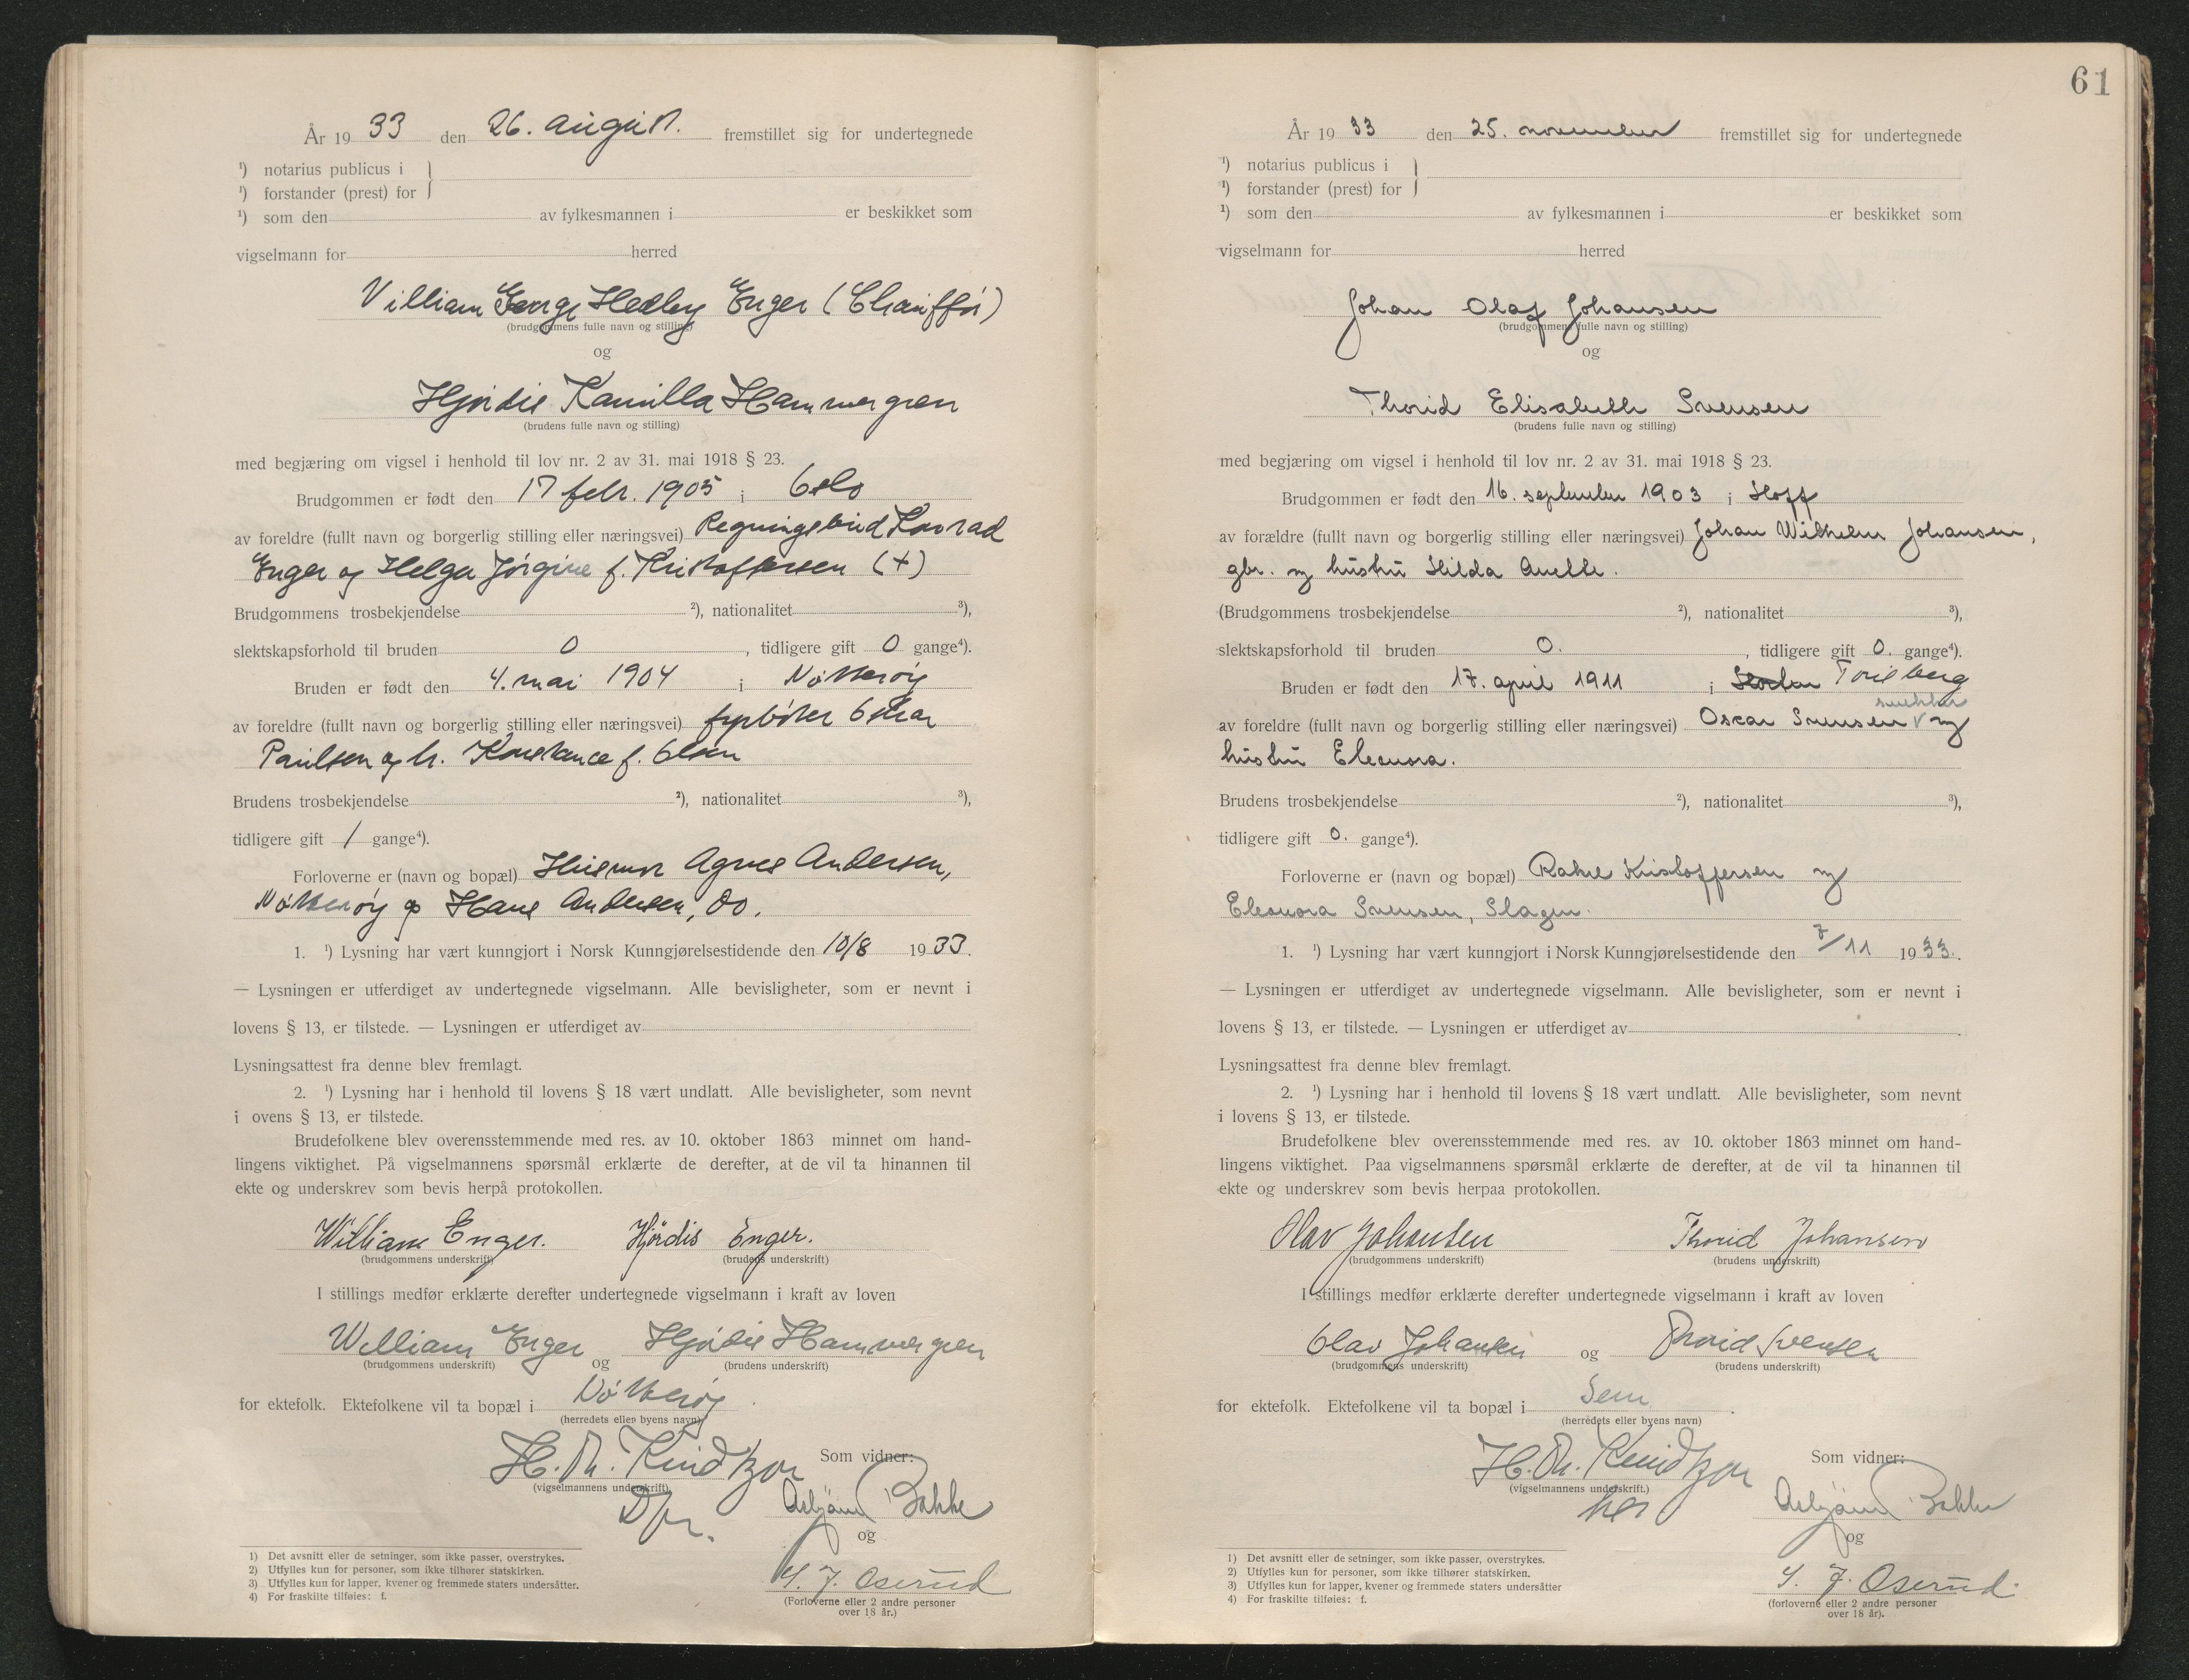 År 1933 den 26. august. fremstillet sig for undertegnede
¹) notarius publicus i
¹) forstander (prest) for
¹) som den av fylkesmannen i er beskikket som
vigselmann for herred
William George Hedley Enger (Chauffør)
(brudgommens fulle navn og stilling)
og
Hjørdis Kamilla Hammergren
(brudens fulle navn og stilling)
med begjæring om vigsel i henhold til lov nr. 2 av 31. mai 1918 § 23.
Brudgommen er født den 17 febr. 1905 i Oslo
av foreldre (fullt navn og borgerlig stilling eller næringsvei) Regningsbud Konrad
Enger og Helga Jørgine f. Kristoffersen (+)
Brudgommens trosbekjendelse ²), nationalitet ³),
slektskapsforhold til bruden 0, tidligere gift 0 gange⁴).
Bruden er født den 4. mai 1904 i Nøtterøy
av foreldre (fullt navn og borgerlig stilling eller næringsvei) fyrbøter Oskar
Paulsen og h. Konstance f. Olsen
Brudens trosbekjendelse ²), nationalitet ³),
tidligere gift 1 gange⁴).
Forloverne er (navn og bopæl) Husmor Agnes Andersen,
Nøtterøy og Hans Andersen, do.
1. ¹) Lysning har vært kunngjort i Norsk Kunngjørelsestidende den 10/8 1933.
— Lysningen er utferdiget av undertegnede vigselmann. Alle bevisligheter, som er nevnt i
lovens § 13, er tilstede. — Lysningen er utferdiget av
Lysningsattest fra denne blev fremlagt.
2. ¹) Lysning har i henhold til lovens § 18 vært undlatt. Alle bevisligheter, som nevnt
i ovens § 13, er tilstede.
Brudefolkene blev overensstemmende med res. av 10. oktober 1863 minnet om hand-
lingens viktighet. På vigselmannens spørsmål erklærte de derefter, at de vil ta hinannen til
ekte og underskrev som bevis herpå protokollen.
William Enger. Hjördis Enger.
(brudgommens underskrift) (brudens underskrift)
I stillings medfør erklærte derefter undertegnede vigselmann i kraft av loven
William Enger og Hjørdis Hammergren
(brudgommens underskrift) (brudens underskrift)
for ektefolk. Ektefolkene vil ta bopæl i Nøtterøy.
(herredets eller byens navn)
H. Th. Knudtzon Som vidner:
(vigselmannens underskrift)
Asbjørn Bakke
og
S. J. Oserud
(Forloverne eller 2 andre personer
over 18 år.)
1) Det avsnitt eller de setninger, som ikke passer, overstrykes.
2) Utfylles kun for personer, som ikke tilhører statskirken.
3) Utfylles kun for lapper, kvener og fremmede staters undersåtter.
4) For fraskilte tilføies: f.
61
År 1933 den 25. november fremstillet sig for undertegnede
¹) notarius publicus i
¹) forstander (prest) for
¹) som den av fylkesmannen i er beskikket som
vigselmann for herred
Johan Olaf Johansen
(brudgommens fulle navn og stilling)
og
Thorid Elisabeth Svensen
(brudens fulle navn og stilling)
med begjæring om vigsel i henhold til lov nr. 2 av 31. mai 1918 § 23.
Brudgommen er født den 16. september 1903 i Hoff
av forældre (fullt navn og borgerlig stilling eller næringsvei) Johan Wilhelm Johansen,
gbr. og hustru Hilda Anette.
(Brudgommens trosbekjendelse ²), nationalitet ³),
slektskapsforhold til bruden 0., tidligere gift 0. gange⁴).
Bruden er født den 17. april 1911 i Torsberg
snekker
av foreldre (fullt navn og borgerlig stilling eller næringsvei) Oscar Svensen og
hustru Eleonora.
Brudens trosbekjendelse ²), nationalitet ³),
tidligere gift 0. gange⁴).
Forloverne er (navn og bopæl) Kristoffersen og
Eleonora Svensen, Slagen.
1. ¹) Lysning har vært kunngjort i Norsk Kunngjørelsestidende den 7/11 1933.
— Lysningen er utferdiget av undertegnede vigselmann. Alle bevisligheter, som er nevnt i
lovens § 13, er tilstede. — Lysningen er utferdiget av
Lysningsattest fra denne blev fremlagt.
2. ¹) Lysning har i henhold til lovens § 18 vært undlatt. Alle bevisligheter, som nevnt
i lovens § 13, er tilstede.
Brudefolkene blev overensstemmende med res. av 10. oktober 1863 minnet om hand-
lingens viktighet. Paa vigselmannens spørsmål erklærte de derefter, at de vil ta hinannen til
ekte og underskrev som bevis herpaa protokollen.
Olav Johansen Thorid Johansen
(brudgommens underskrift) (brudens underskrift)
I stillings medfør erklærte derefter undertegnede vigselmann i kraft av loven
Olav Johansen og Thorid Svensen
(brudgommens underskrift) (brudens underskrift)
for ektefolk. Ektefolkene vil ta bopæl i Sem.
(herredets eller byens navn)
H. Th. Knudtzon Som vidner:
(vigselmannens underskrift.)
Asbjørn Bakke
og
S. J. Oserud.
(forloverne eller 2 andre personer
over 18 år).
1) Det avsnitt eller de setninger, som ikke passer, overstrykes.
2) Utfylles kun for personer, som ikke tilhører statskirken.
3) Utfylles kun for lapper, kvener og fremmede staters undersåtter
4) For fraskilte tilføies: f.